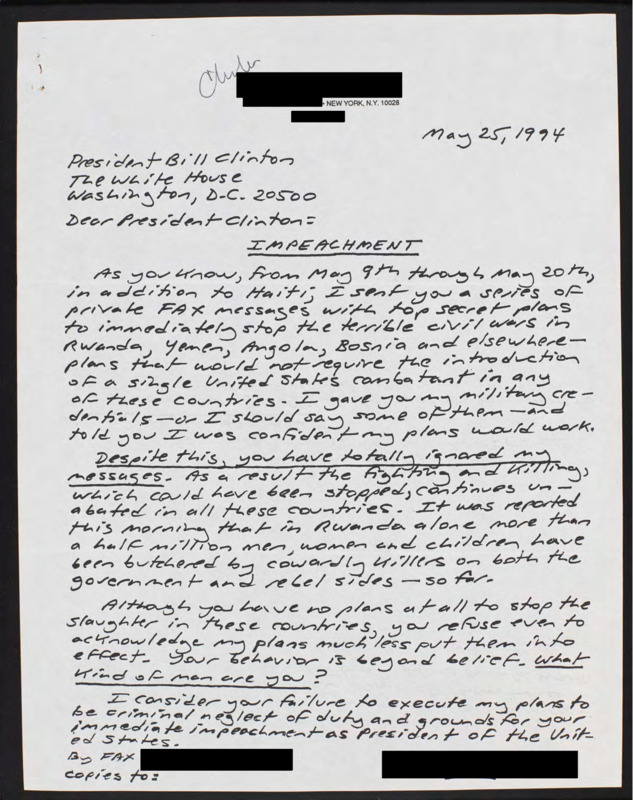 NEW YORK, N.Y. 10028
May 25, 1994
President Bill Clinton
The White House
Washington, D.C. 20500
Dear President Clinton:
IMPEACHMENT
As you know, from May 9th through May 20th,
in addition to Haiti, I sent you a series of
private FAX messages with top secret plans
to immediately stop the terrible civil wars in
Rwanda, Yemen, Angola, Bosnia and elsewhere—
plans that would not require the introduction
of a single United States combatant in any
of these countries. I gave you my military cre-
dentials—or I should say some of them—and
told you I was confident my plans would work.
Despite this, you have totally ignored my
messages. As a result the fighting and killing,
which could have been stopped, continues un-
abated in all these countries. It was reported
this morning that in Rwanda alone more than
a half million men, women and children have
been butchered by cowardly killers on both the
government and rebel sides—so far.
Although you have no plans at all to stop the
slaughter in these countries, you refuse even to
acknowledge my plans much less put them into
effect. Your behavior is beyond belief. What
kind of man are you?
I consider your failure to execute my plans to
be criminal neglect of duty and grounds for your
immediate impeachment as President of the Unit-
ed States.
By FAX
Copies to: